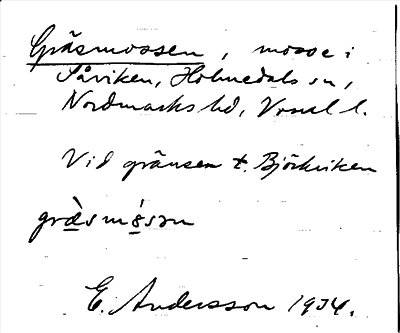 Gräsmossen, mosse i
Såviken, Holmedals sn,
Nordmarks hd, Vrml l.
Vid gränsen t. Björkviken
græ̀smósən
E. Andersson 1934.